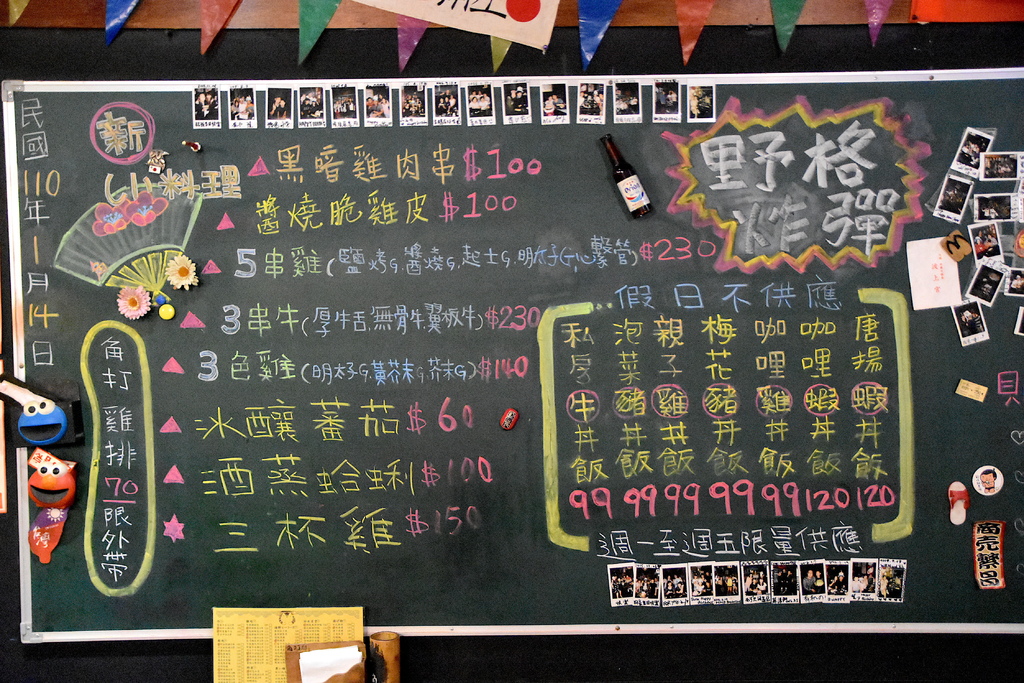 民國110年1月14日
新
しい料理
黑暗雞肉串$100
醬燒脆雞皮$100
5串雞(鹽烤,醬燒,起士,明太子,心繫管)$230
3串牛(厚牛舌,無骨牛,翼板牛)$230
3色雞(明太子,黃芥末,芥末)$140
冰釀蕃茄$60
酒蒸蛤蜊$100
三杯雞$150
角打雞排70限外帶
野格炸彈
假日不供應
私房牛丼飯99
泡菜豬丼飯99
親子雞丼飯99
梅花豬丼飯99
咖哩雞丼飯99
咖哩蝦丼飯120
唐揚蝦丼飯120
週一至週五限量供應
商売繁昌
台灣
貝